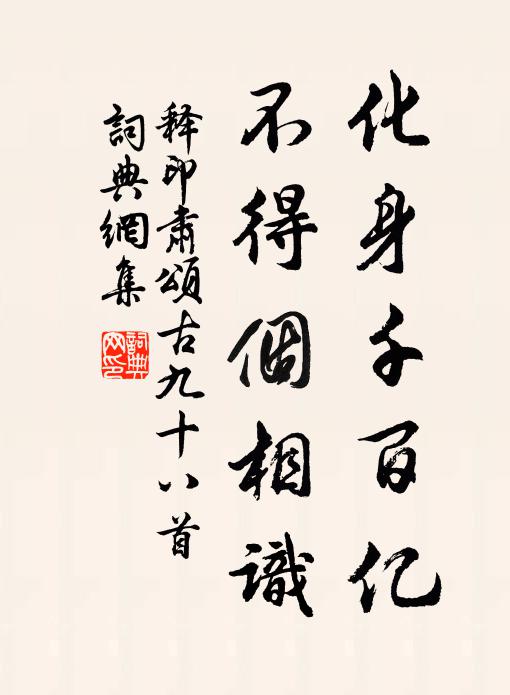 化身千百亿
不得個相識
释印肃頌古九十八首
詞典網集
詞典網印